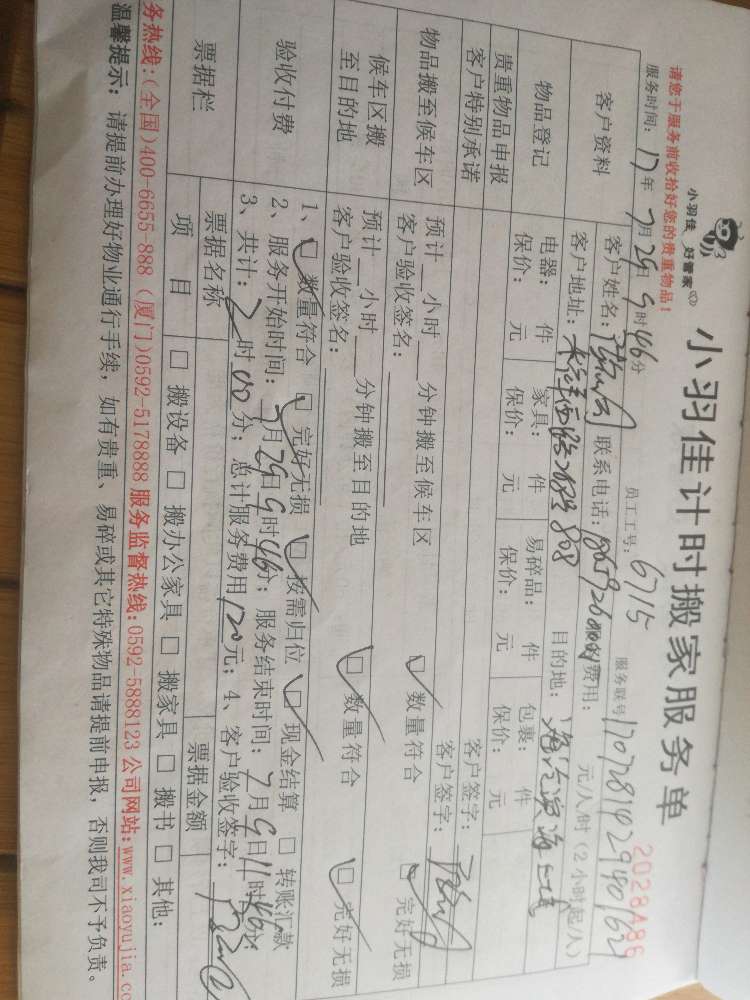 请您于服务前收拾好您的贵重物品！
小羽佳 好管家
小羽佳计时搬家服务单
2028486
服务时间：17年7月29日9时46分 员工工号：6715 服务联号
客户资料 客户姓名： 联系电话： 费用： 元/人/时（2小时起/人）
客户地址： 808 目的地：
物品登记 电器： 件 家具： 件 易碎品： 件 包裹： 件
保价： 元 保价： 元 保价： 元 保价： 元
贵重物品申报 客户签字：
客户特别承诺 客户签字：
物品搬至候车区 预计 小时 分钟搬至候车区 □ 数量符合 □ 完好无损
客户验收签名：
候车区搬至目的地 预计 小时 分钟搬至目的地 □ 数量符合 □ 完好无损
客户验收签名：
验收付费 1、□ 数量符合 □ 完好无损 □ 按需归位 □ 现金结算 □ 转账汇款
2、服务开始时间：7月29日9时46分；服务结束时间：7月9日11时46分；
3、共计：2时00分；总计服务费用120元；4、客户验收签字：
票据栏 票据名称 票据金额
项目 □ 搬设备 □ 搬办公家具 □ 搬家具 □ 搬书 □ 其他：
务热线：(全国)400-6655-888（厦门)0592-5178888 服务监督热线：0592-5888123 公司网站：www.xiaoyujia.cc
温馨提示：请提前办理好物业通行手续，如有贵重、易碎或其它特殊物品请提前申报，否则我司不予负责。